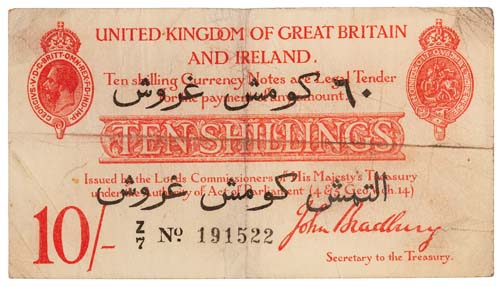 UNITED·KINGDOM OF GREAT BRITAIN
AND IRELAND.
GEORGIVS·V·D·G·BRITT·OMN·REX·F·D·IND·IMP·
Ten shilling Currency Notes are Legal Tender
٦٠ كومش غروش
for the payment of any amount.
TEN SHILLINGS
Issued by the Lords Commissioners of His Majesty's Treasury
التمش كومش غروش
under the Authority of Act of Parliament (4 & 5 Geo.V. ch.14)
10/-
Z/7 No 191522
John Bradbury
Secretary to the Treasury.